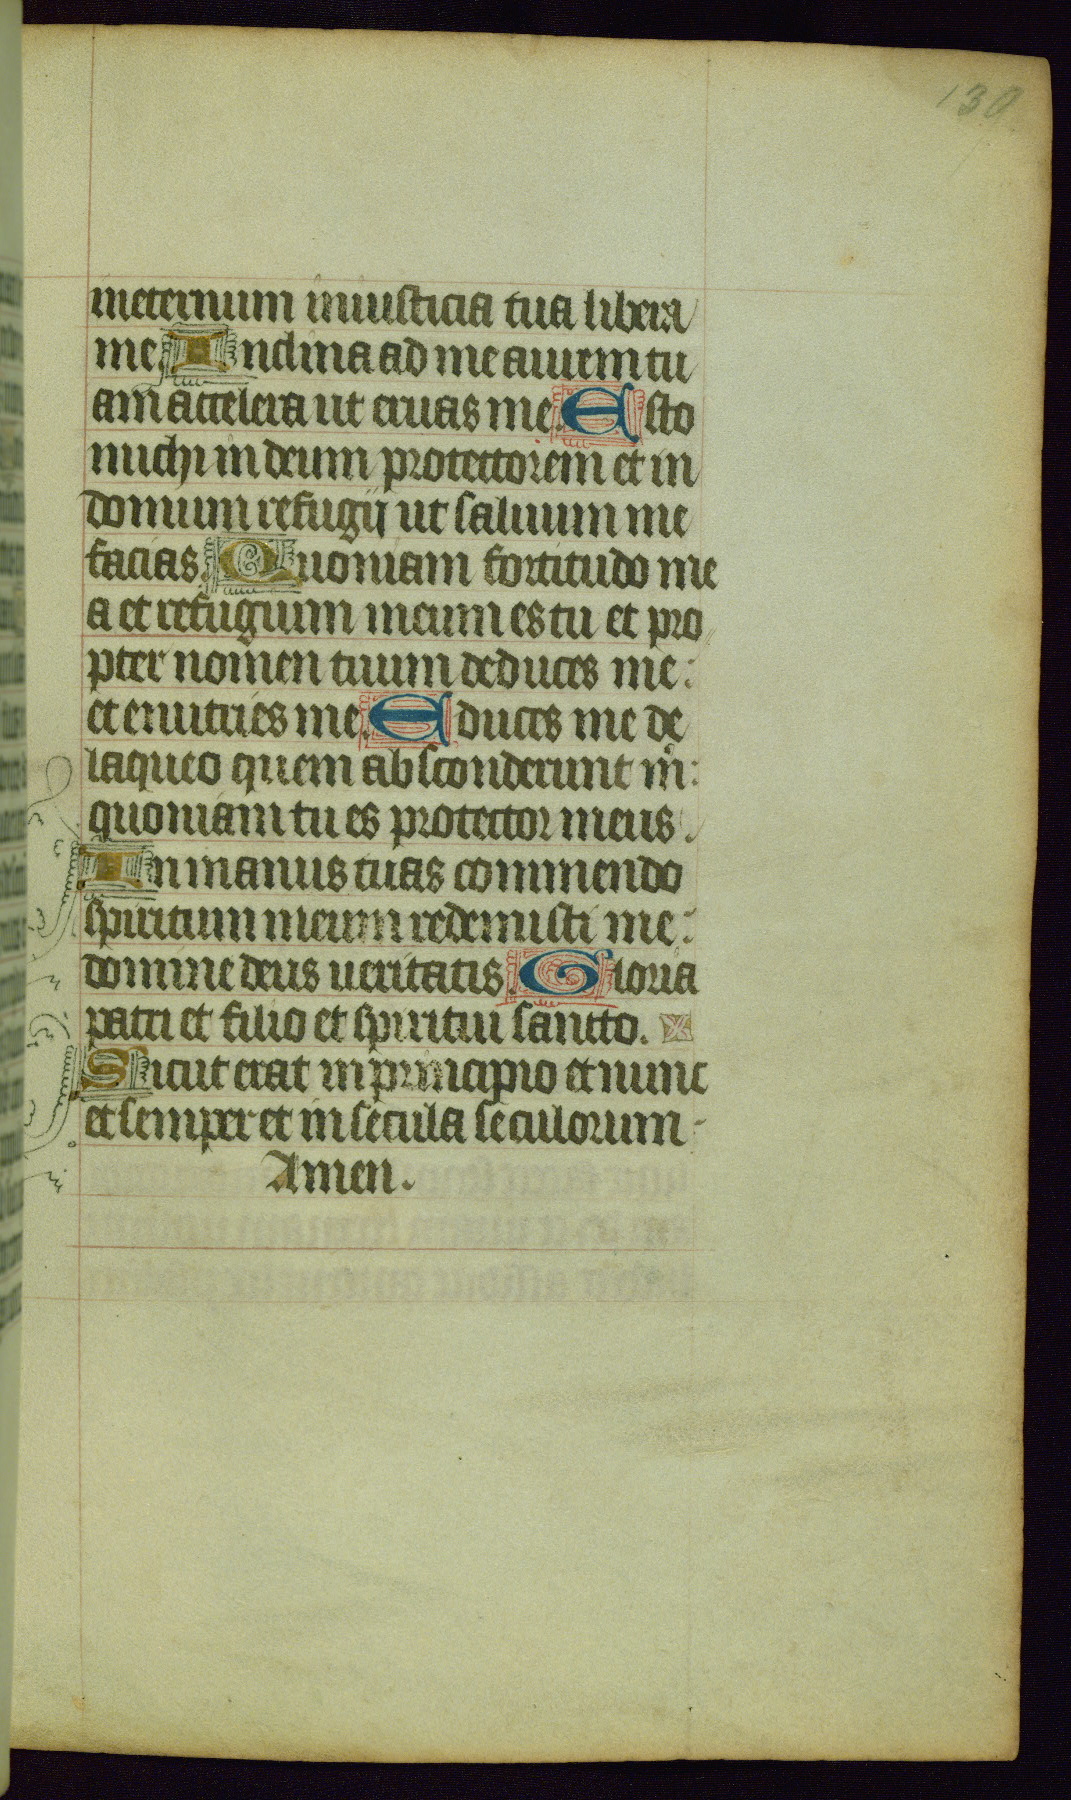 130
ineternum iniusticia tua libera
me. Inclina ad me aurem tu
am accelera ut eruas me. Esto
michi in deum protectorem et in
domum refugij ut saluum me
facias. Quoniam fortitudo me
a et refugium meum es tu et pro
pter nomen tuum deduces me:
et enutries me. Educes me de
laqueo quem absconderunt m̊:
quoniam tu es protector meus.
In manus tuas commendo
spiritum meum redemisti me:
domine deus ueritatis. Gloria
patri et filio et spiritui sancto.
Sicut erat in principio et nunc
et semper et in secula seculorum
Amen.